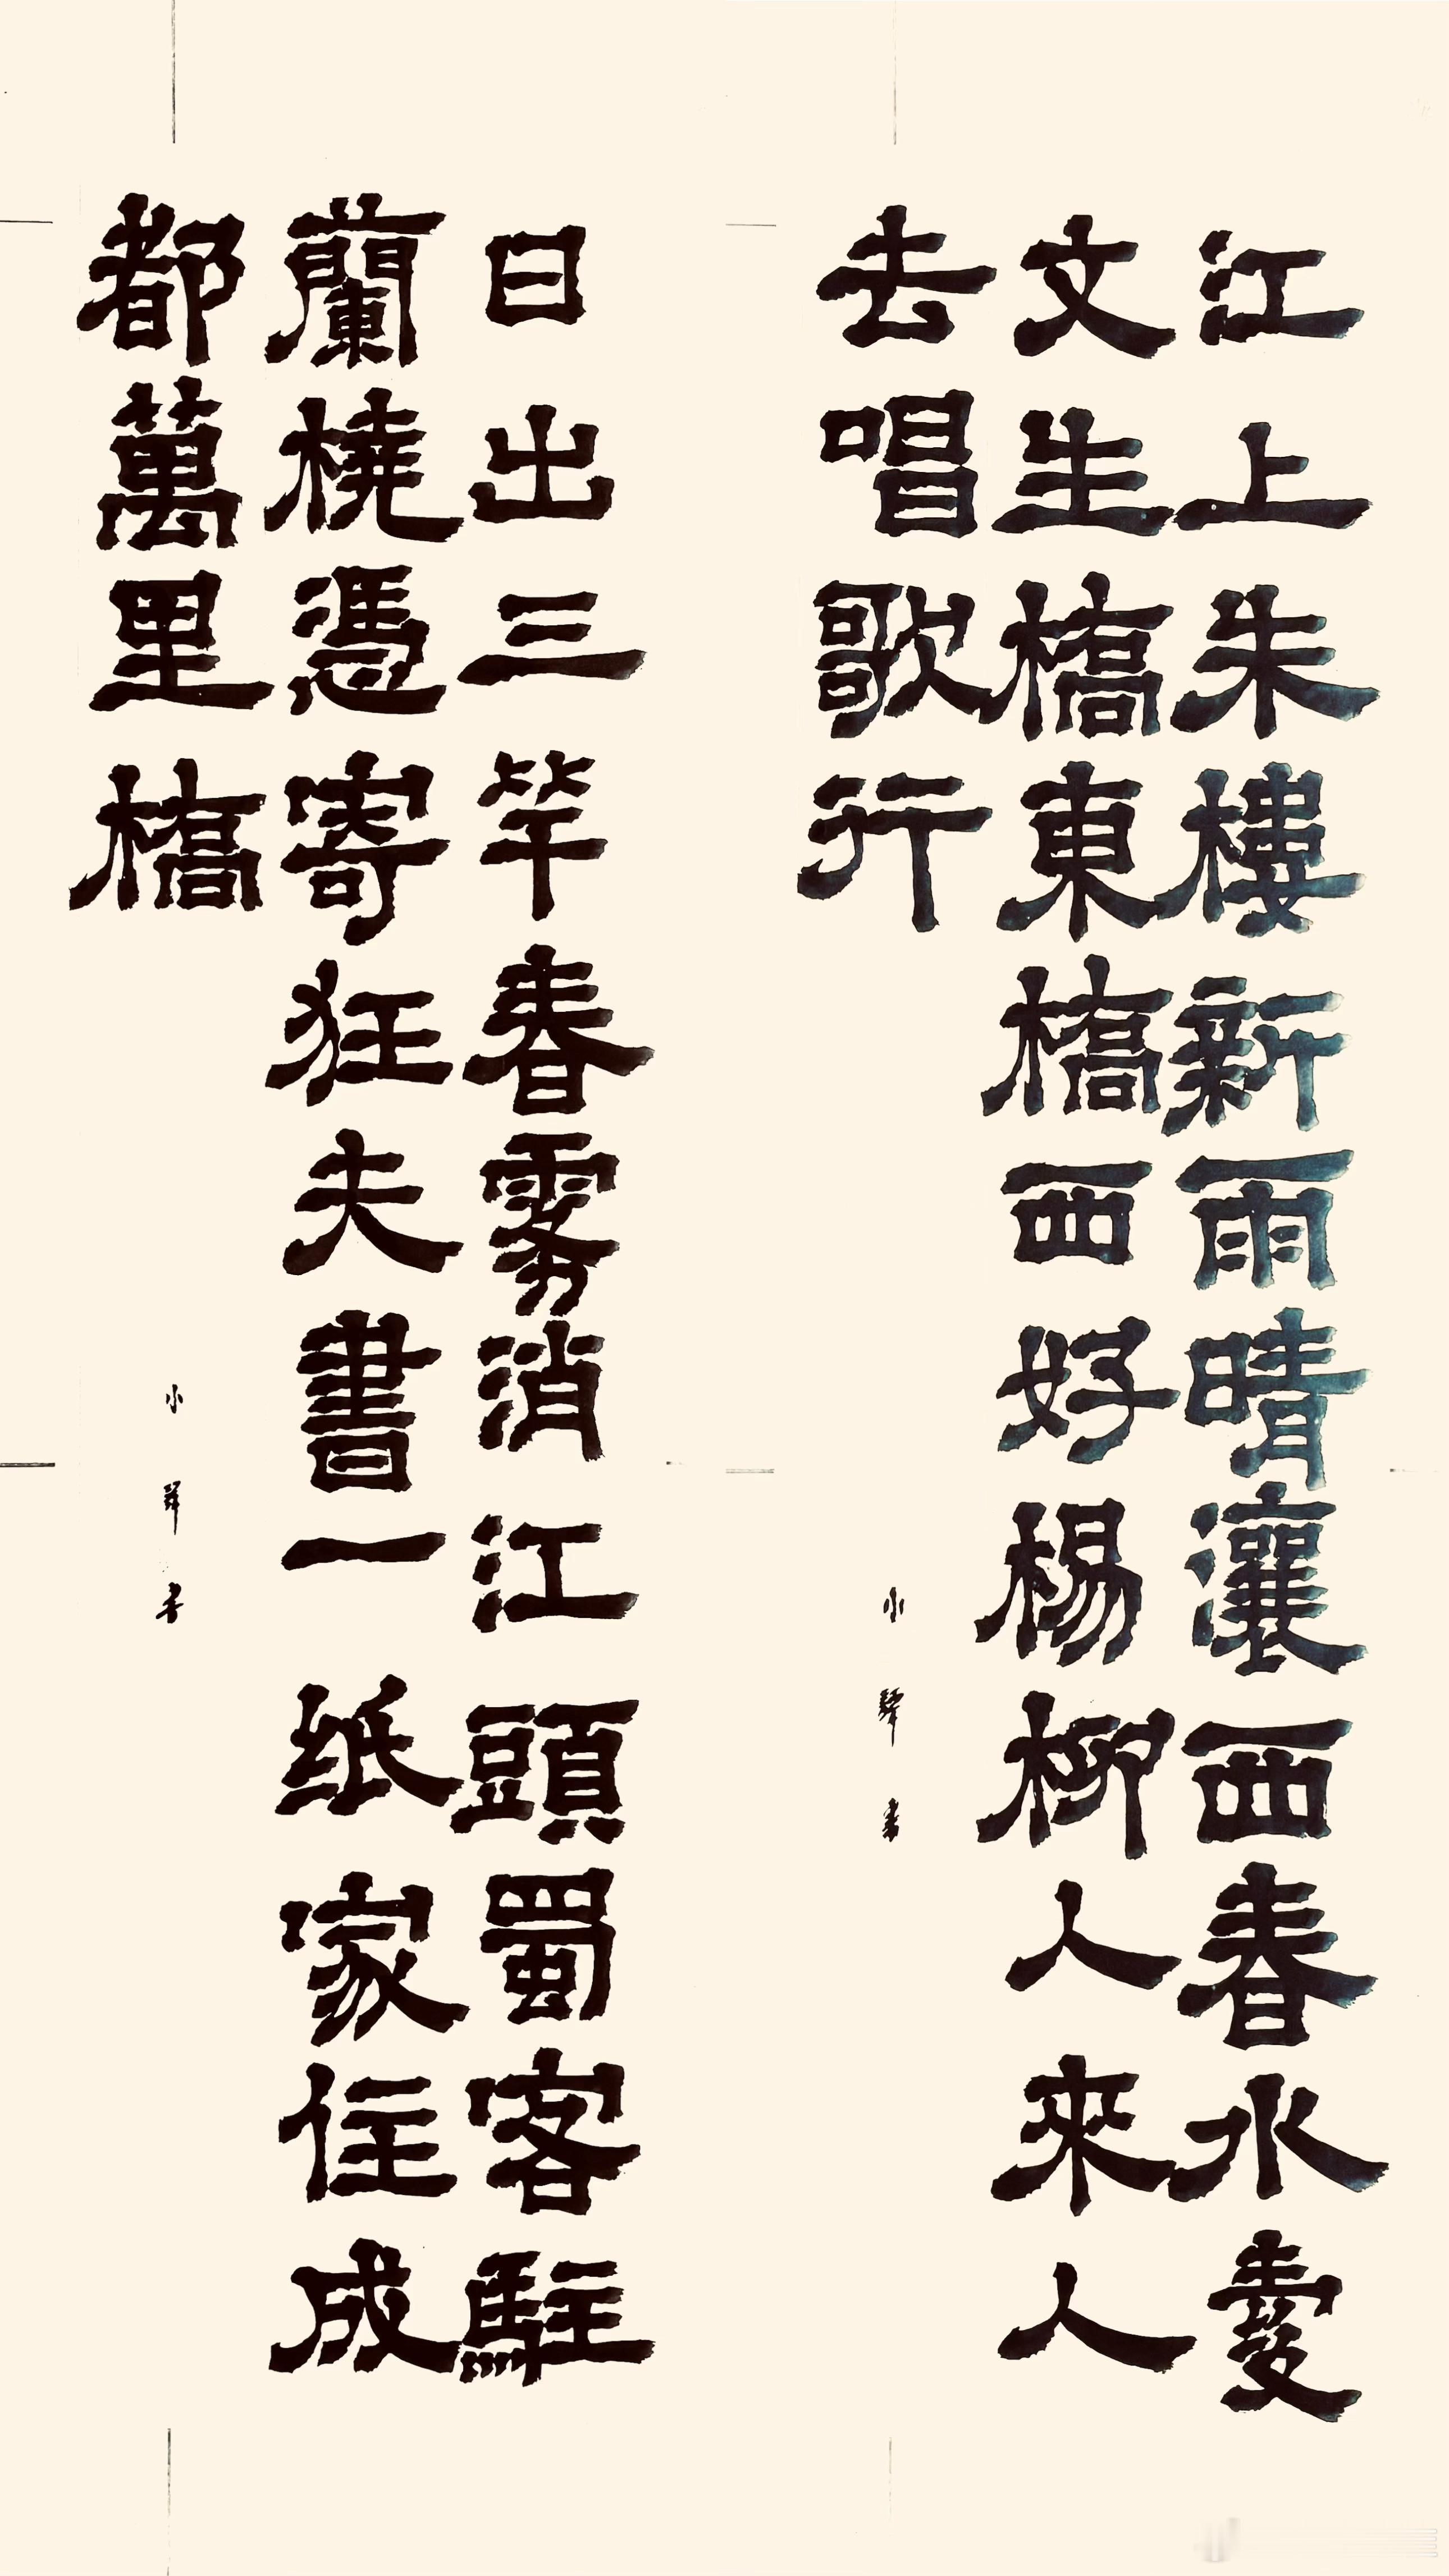 江上朱樓新雨晴瀼西春水縠
文生橋東橋西好楊柳人來人
去唱歌行
日出三竿春霧消江頭蜀客駐
蘭橈憑寄狂夫書一紙家住成
都萬里橋